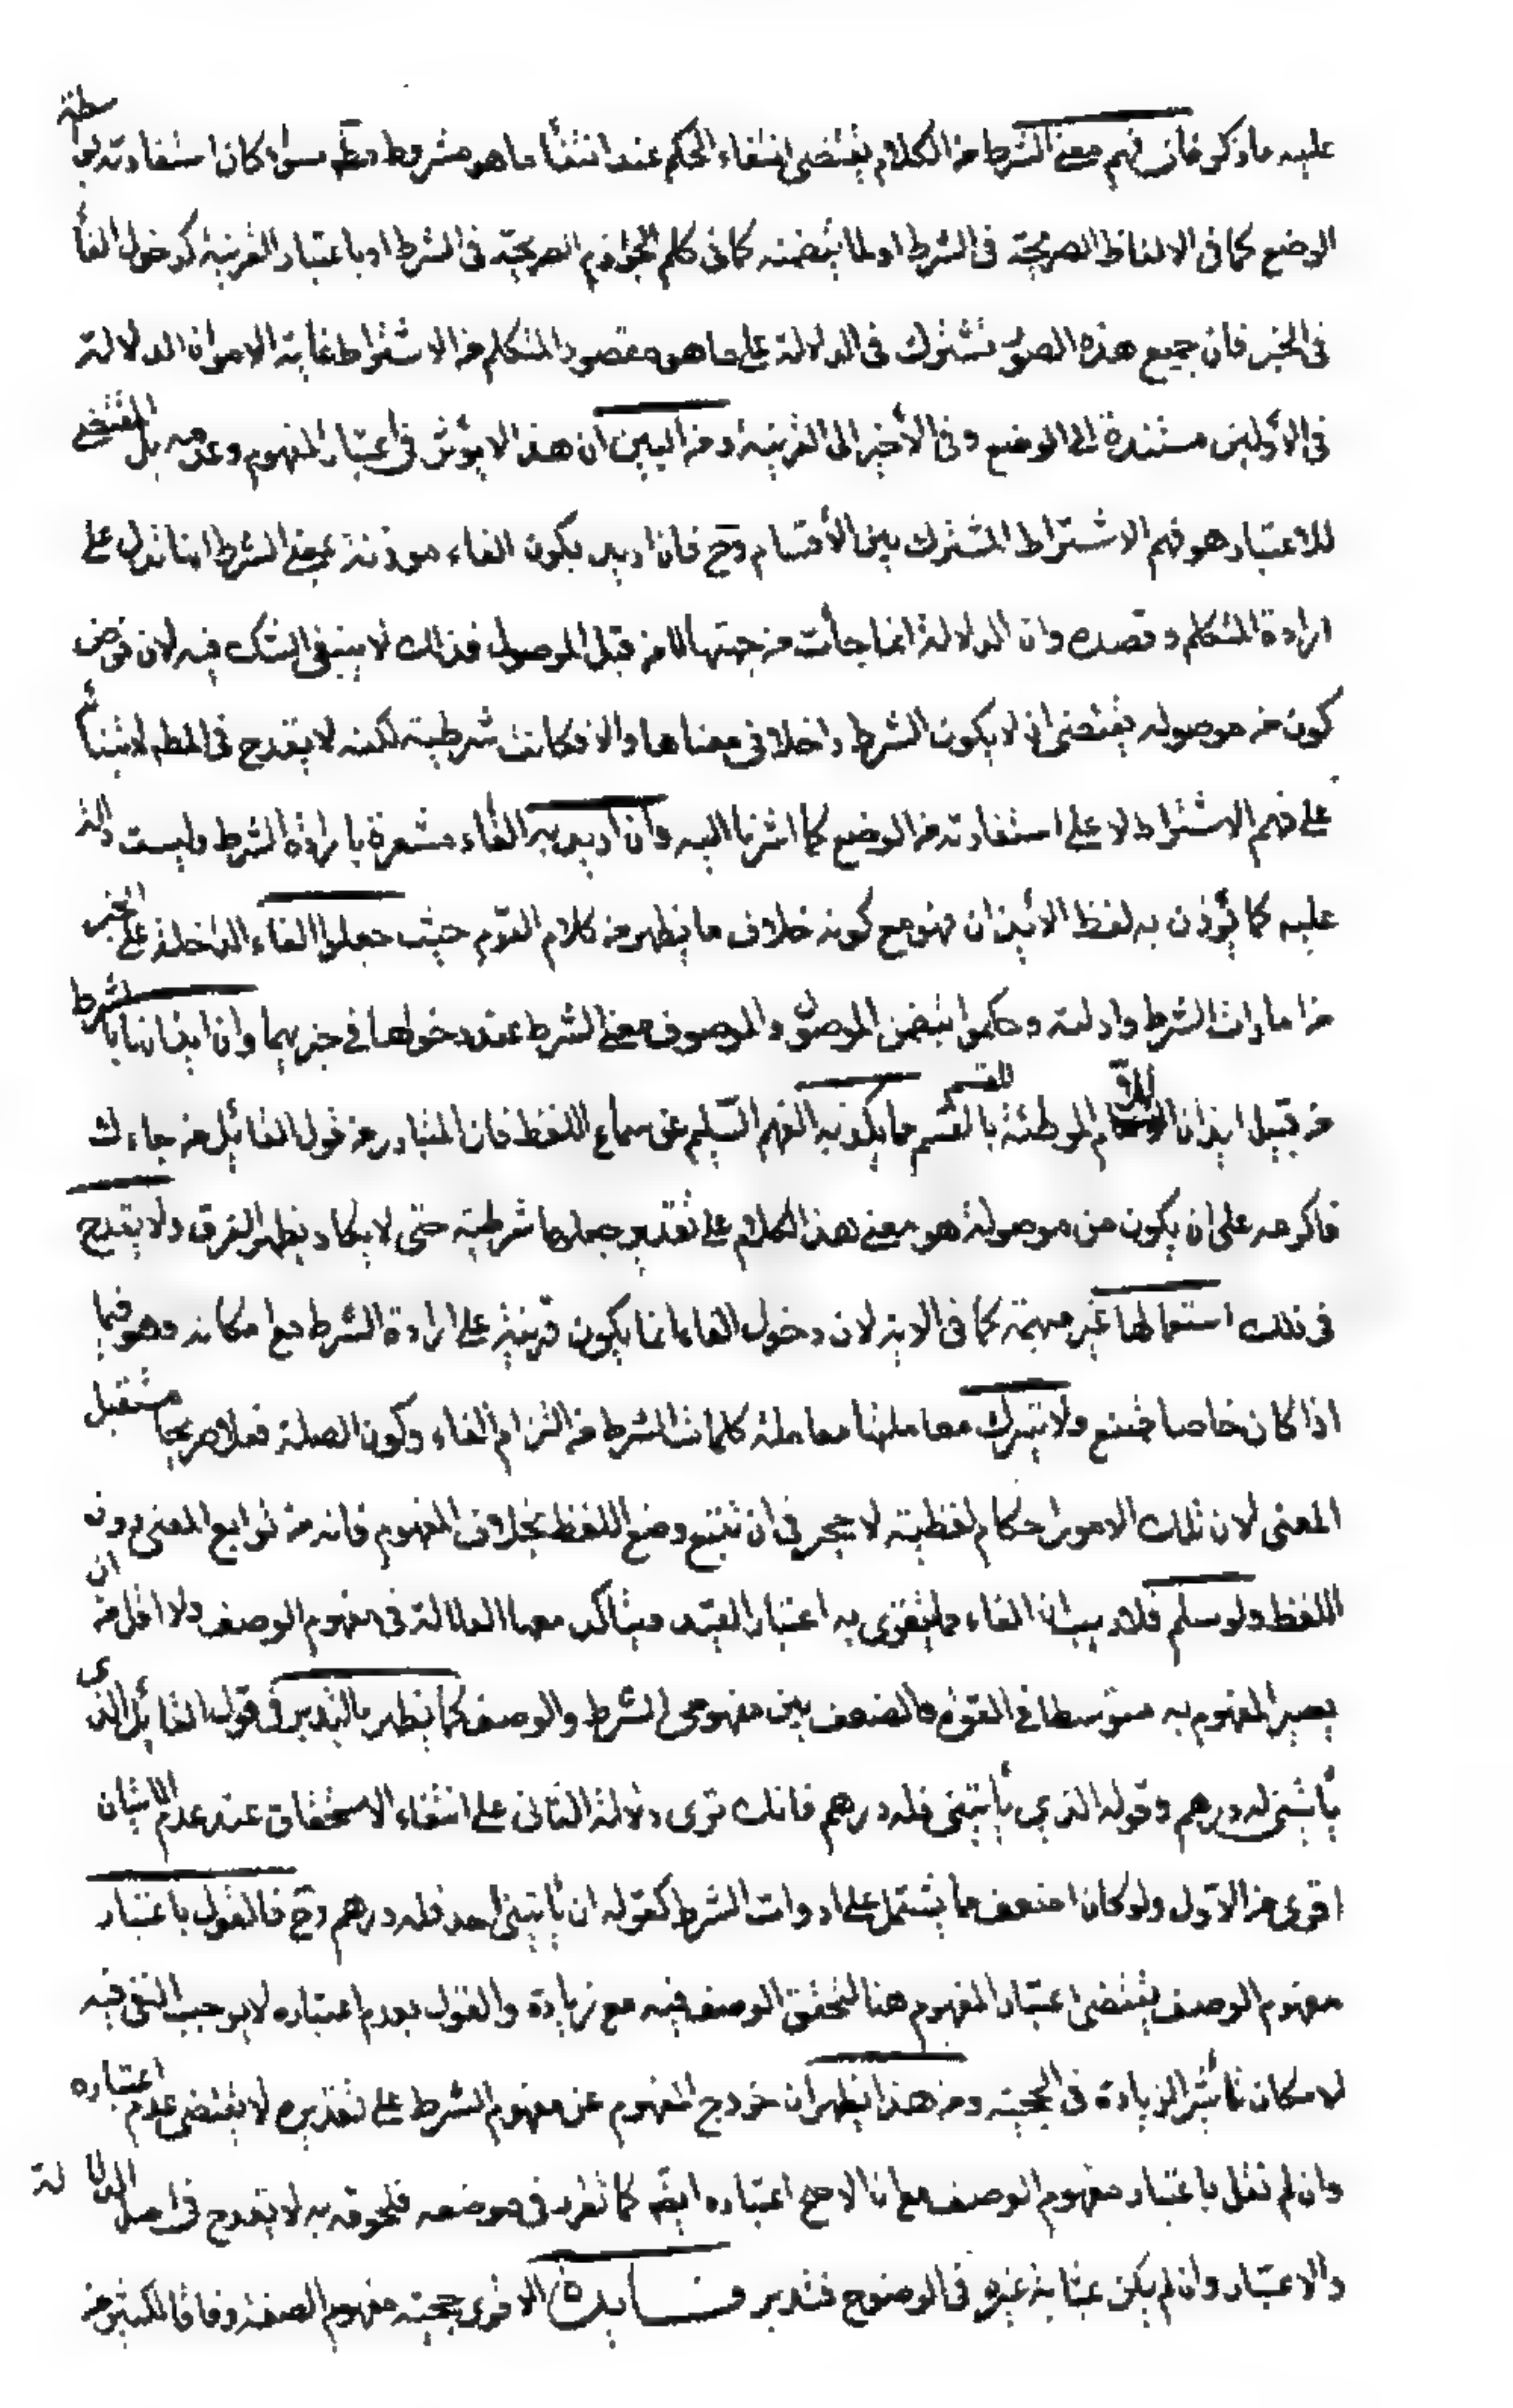 عليه ما ذكر فان فهم معنى الشرط من الكلام يقتضى انتفاء الحكم عند انتفأ ما هو مشروط مط سواء كان استفادته بواسطة
الوضع كما فى الالفاظ الصريحة فى الشرط او لما يتضمنه كما فى كلم الجوازم الصريحة فى الشرط او باعتبار القرينة كدخول الفأ
فى الخبر فان جميع هذه الصوَر تشترك فى الدلالة على ما هو مقصود المتكلم من الاشتراط غاية الامر ان الدلالة
فى الأولين مستندة الى الوضع وفى الأخير الى القرينة ومن البين ان هذا لا يؤثر فى اعتبار المفهوم وعدمه بل المقتضى
للاعتبار هو فهم الاشتراط المشترك بين الأقسام وح فان اريد بكون الفاء موذنة بمعنى الشرط انها تدل على
ارادة المتكلم وقصده وان الدلالة انما جأت من جهتها لا من قبل الموصول فذلك لا ينبغى الشك فيه لان فرض
كون من موصوله يقتضى ان لا يكون الشرط داخلا فى معناها والا فكانت شرطية لكنه لا يقدح فى المط لابتنائه
على فهم الاشتراط لا على استفادته من الوضع كما اشرنا اليه وان اريد به الفأء مشعرة بارادة الشرط وليست دالة
عليه كما يؤذن به لفظ الايذان فهو مع كونه خلاف ما يظهر من كلام القوم حيث جعلوا الفاء الداخلة على الخبر
من امارات الشرط وادلته وحكموا بتضمن الموصول والموصوف معنى الشرط عند دخولها فى خبريهما وان ايذانها بالشرط
من قبيل ايذان اللام الموطئة بالقسم للقسم مما يكذبه الفهم السّليم عن سماع اللفظ فان المتبادر من قول القائل من جاءك
فاكرمه على ان يكون من موصولة هو معنى هذا الكلام على تقدير جعلها شرطية حتى لا يكاد يظهر الفرق ولا يقدح
فى ذلك استعمالها غير مبهمة كما فى الاية لان دخول الفاء انما يكون قرينة على ارادة الشرط مع امكانه وهو فيما
اذا كان خاصا ممتنع ولا يترك معاملتها معاملة كلمات الشرط من التزام الفاء وكون الصلة فعلا صريحا مستقبل
المعنى لان تلك الامور احكام لفظية لا حجر فى ان تتبع وضع اللفظ بخلاف المفهوم فانه من توابع المعنى دون
اللفظ ولو سلم فلا ريب ان الفاء مما يتقوى به اعتبار القيد ويتأكد معها الدلالة فى مفهوم الوصف ولا اقل من ان
يصير المفهوم به متوسطا فى القوة والضعف بين مفهومى الشرط والوصف كما يظهر بالتدبر فى قول القائل الذى
يأتينى له درهم وقوله الذى يأتينى فله درهم فانك ترى دلالة الثانى على انتفاء الاستحقاق عند عدم الاتيان
اقوى من الاوّل ولو كان اضعف مما يشتمل على ادوات الشرط كقوله ان يأتينى احد فله درهم وح فالقول باعتبار
مفهوم الوصف يقتضى اعتبار المفهوم هنا لتحقق الوصف فيه مع زيادة والقول بعدم اعتباره لا يوجب النفى فيه
لامكان تأثير الزيادة فى الحجية ومن هذا يظهر ان خروج المفهوم عن مفهوم الشرط على تقديره لا يقتضى عدم اعتباره
وان لم نقل باعتبار مفهوم الوصف مع ان الاصح اعتباره ايضً كما تقرر فى موضعه فلحوقه به لا يقدح فى اصل الدلالة
والاعتبار وان لم يكن بمثابة غيره فى الوضوح فتدبر فــائدة الاقوى حجية مفهوم الصفة وفاقا لكثير من